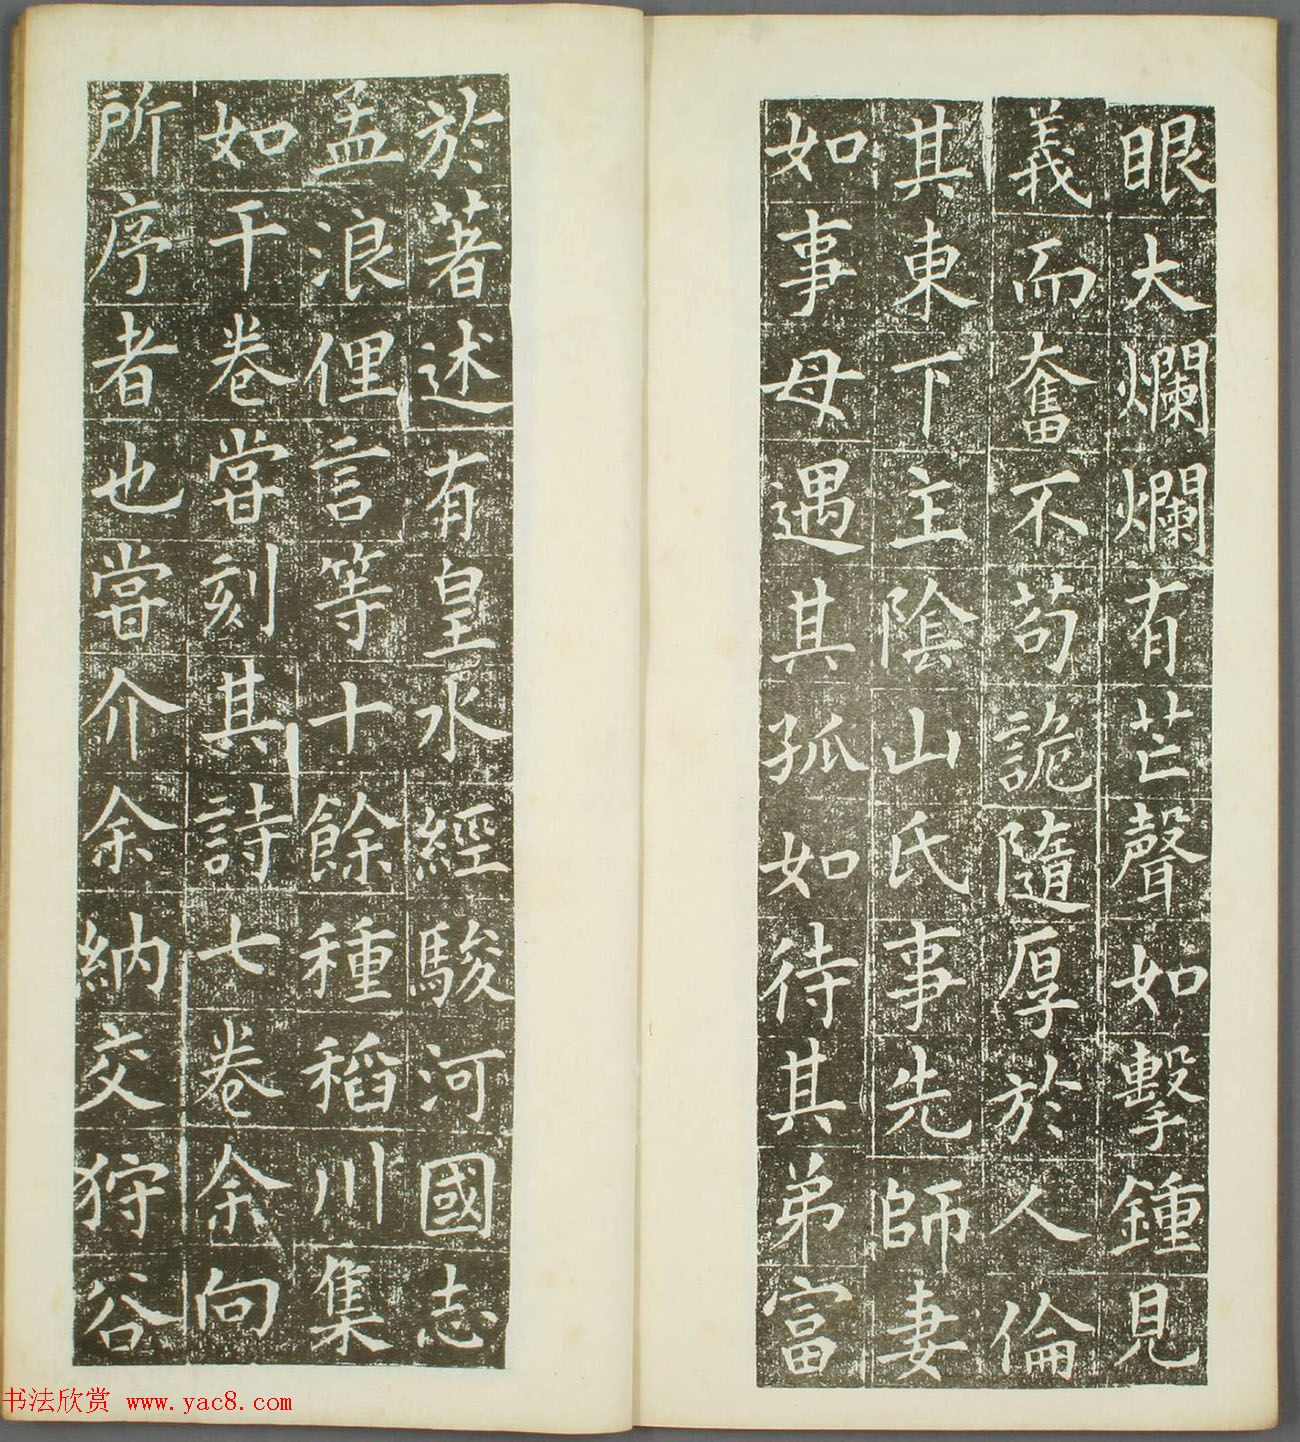 眼大爛爛有芒聲如擊鍾見
義而奮不苟詭隨厚於人倫
其東下主陰山氏事先師妻
如事母遇其孤如待其弟富
於著述有皇水經駿河國志
孟浪俚言等十餘種稻川集
如干卷嘗刻其詩七卷余向
所序者也嘗介余納交狩谷
书法欣赏 www.yac8.com